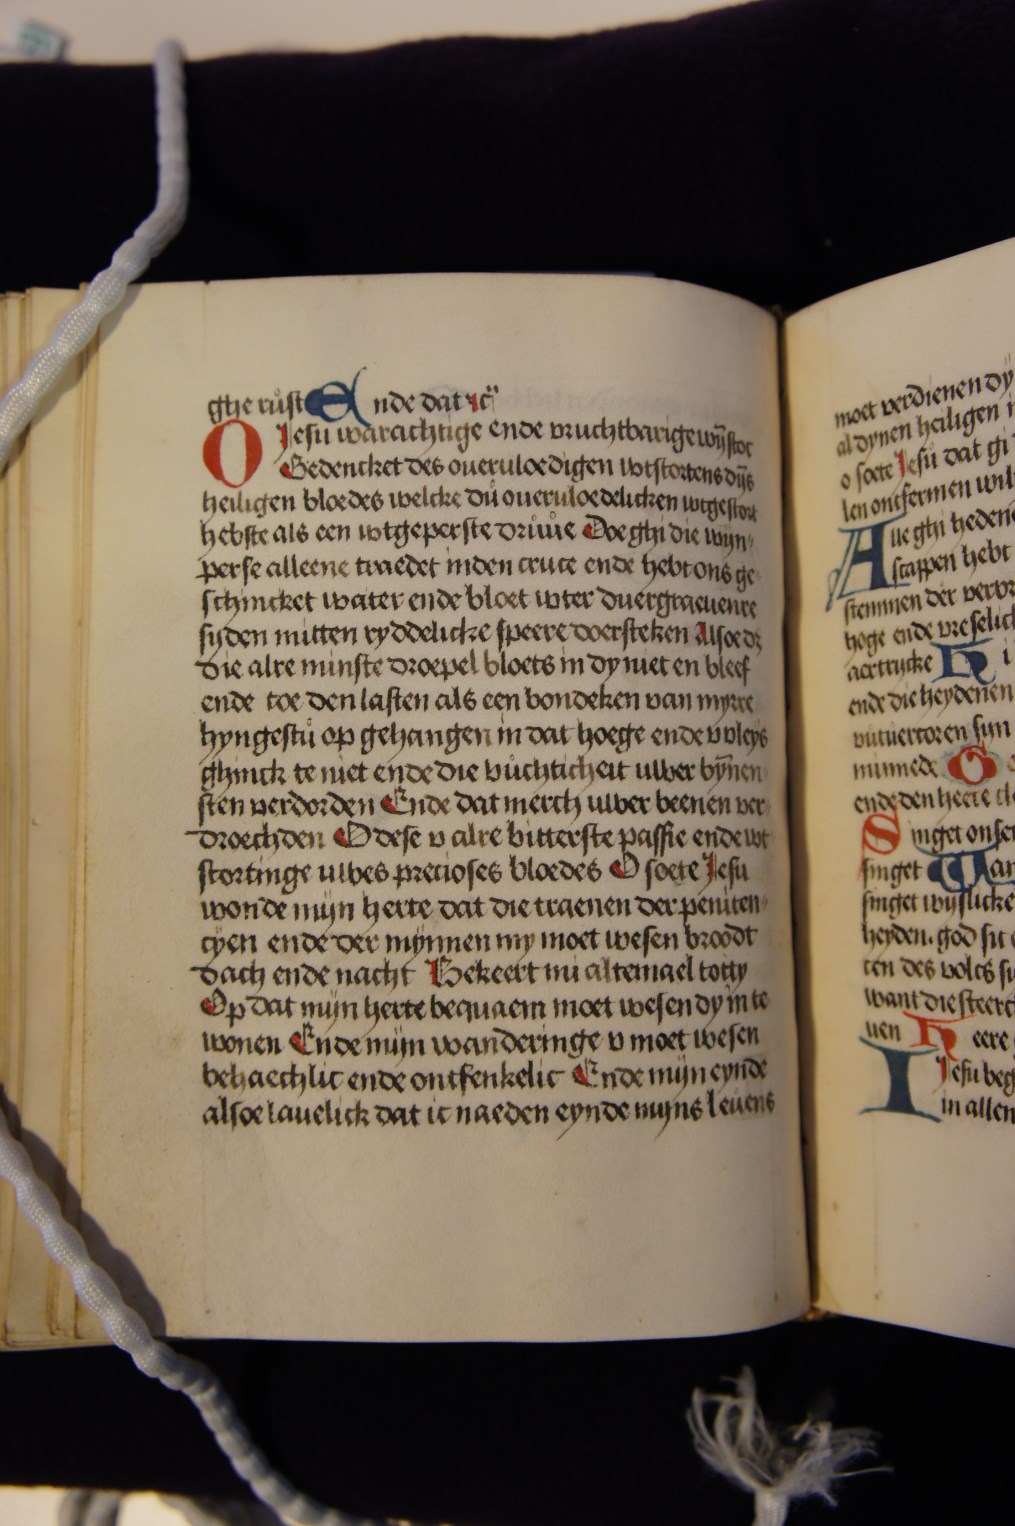 ghe rust Ende dat ic
O Jesu warachtige ende vruchtbarige wijstoc
Gedencket des oueruloedigen wtstortens dijs
heiligen bloedes welcke du oueruloedelicken wtgestort
hebste als een wtgeperste druue Doe ghi die wijn-
perse alleene traedet inden cruce ende hebt ons ge
schincket water ende bloet wter duergraeuenre
syden mitten ryddelicke speere doersteken Alsoe dz
die alre minste droepel bloets in dy niet en bleef
ende toe den lasten als een bondeken van myrre
hyngestu op gehangen in dat hoege ende v vleys
ghinck te niet ende die vuchticheit uwer bynen
sten verdorden Ende dat merch uwer beenen ver
droechden O dese v alre bitterste passie ende wt
stortinge uwes precioses bloedes O soete Jesu
wonde mijn herte dat die traenen der peniten
cyen ende der mynnen my moet wesen broodt
dach ende nacht Bekeert mi altemael totty
Op dat mijn herte bequaem moet wesen dy in te
wonen Ende mijn wanderinge v moet wesen
behaechlic ende ontfenkelic Ende mijn eynde
alsoe lauelick dat ic naeden eynde mijns leuens
moet verdienen dy
al dynen heiligen
o soete Jesu dat gi
len ontfermen
Alle ghi heden
scappen hebt
stemmen der
hoge ende vreselick
aertrycke
ende die heydenen
sun
ende den heere
Singet onser
singet
singet wijslicke
heyden. god sit
ten des volcs
want die steerc
uen Heere
Jesu beg
in allen